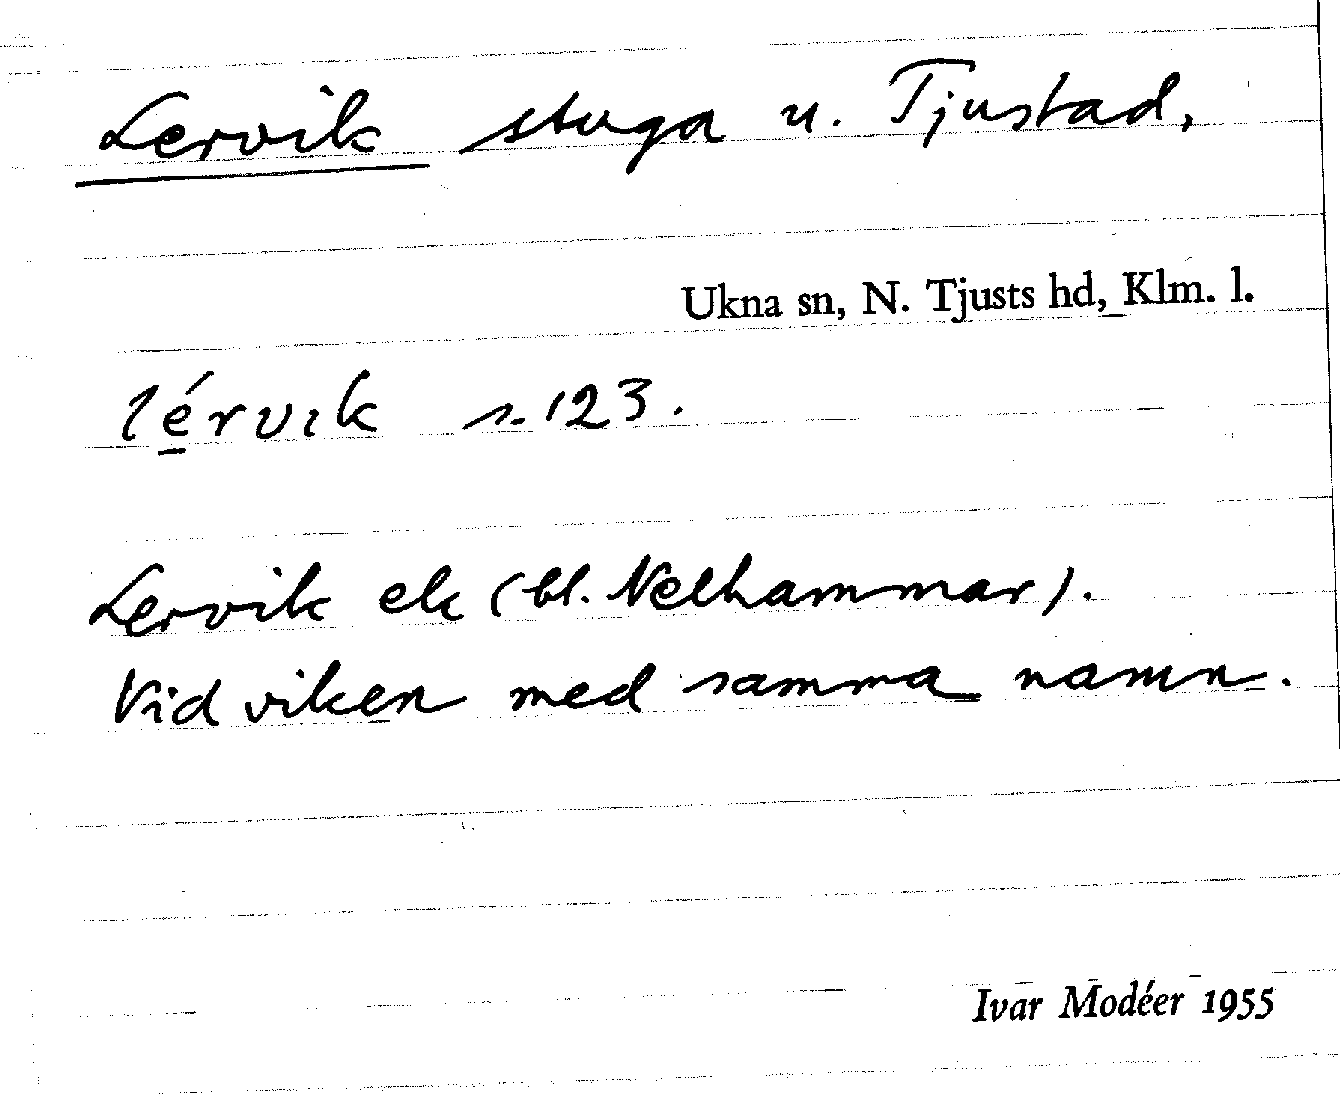 Lervik stuga u. Tjustad,
Ukna sn, N. Tjusts hd, Klm. l.
lérvik s. 123.
Lervik ek (bl. Nelhammar).
Vid viken med samma namn.
Ivar Modéer 1955